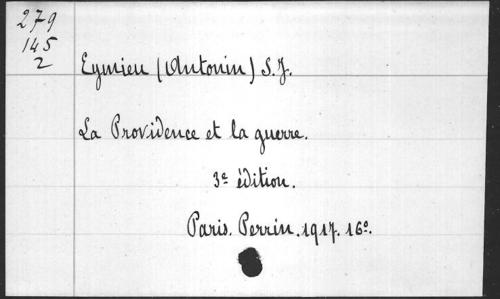 279
145
2
Eymieu (Antonin) S.J.
La Providence et la guerre.
3e édition.
Paris. Perrin. 1917. 16º.